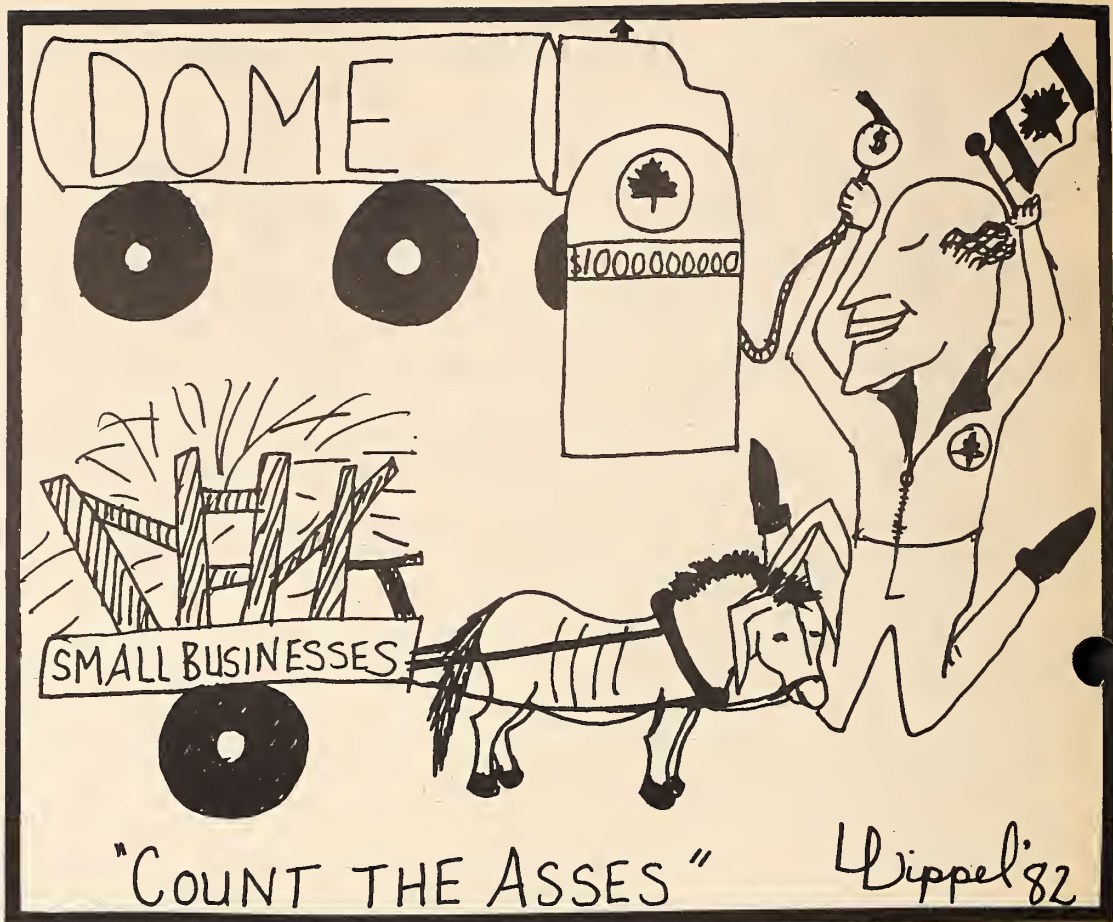 DOME
$
$1000000000
SMALL BUSINESSES
"COUNT THE ASSES"
'82